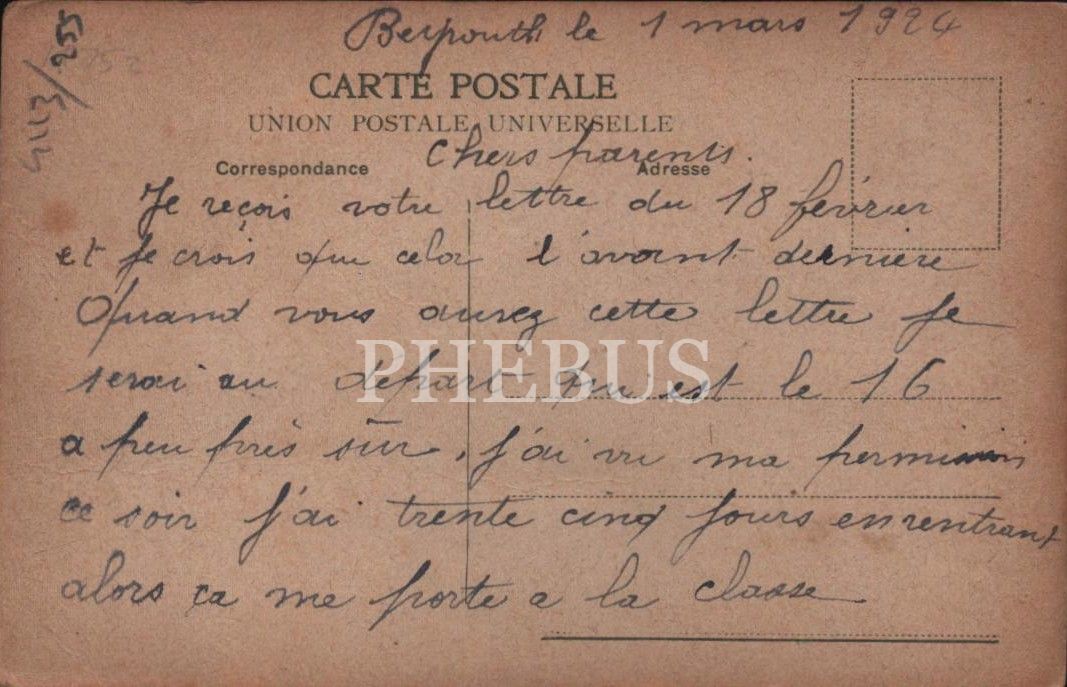 Beyrouth le 1 mars 1924
4113/255
252
CARTE POSTALE
UNION POSTALE UNIVERSELLE
Chers parents.
Correspondance
Adresse
Je reçois votre lettre du 18 février
et je crois que cela l'avant dernière
Quand vous aurez cette lettre je
serai au départ qui est le 16
a peu près sûr. j'ai vu ma permission
ce soir j'ai trente cinq jours en rentrant
alors ça me porte a la classe
PHEBUS